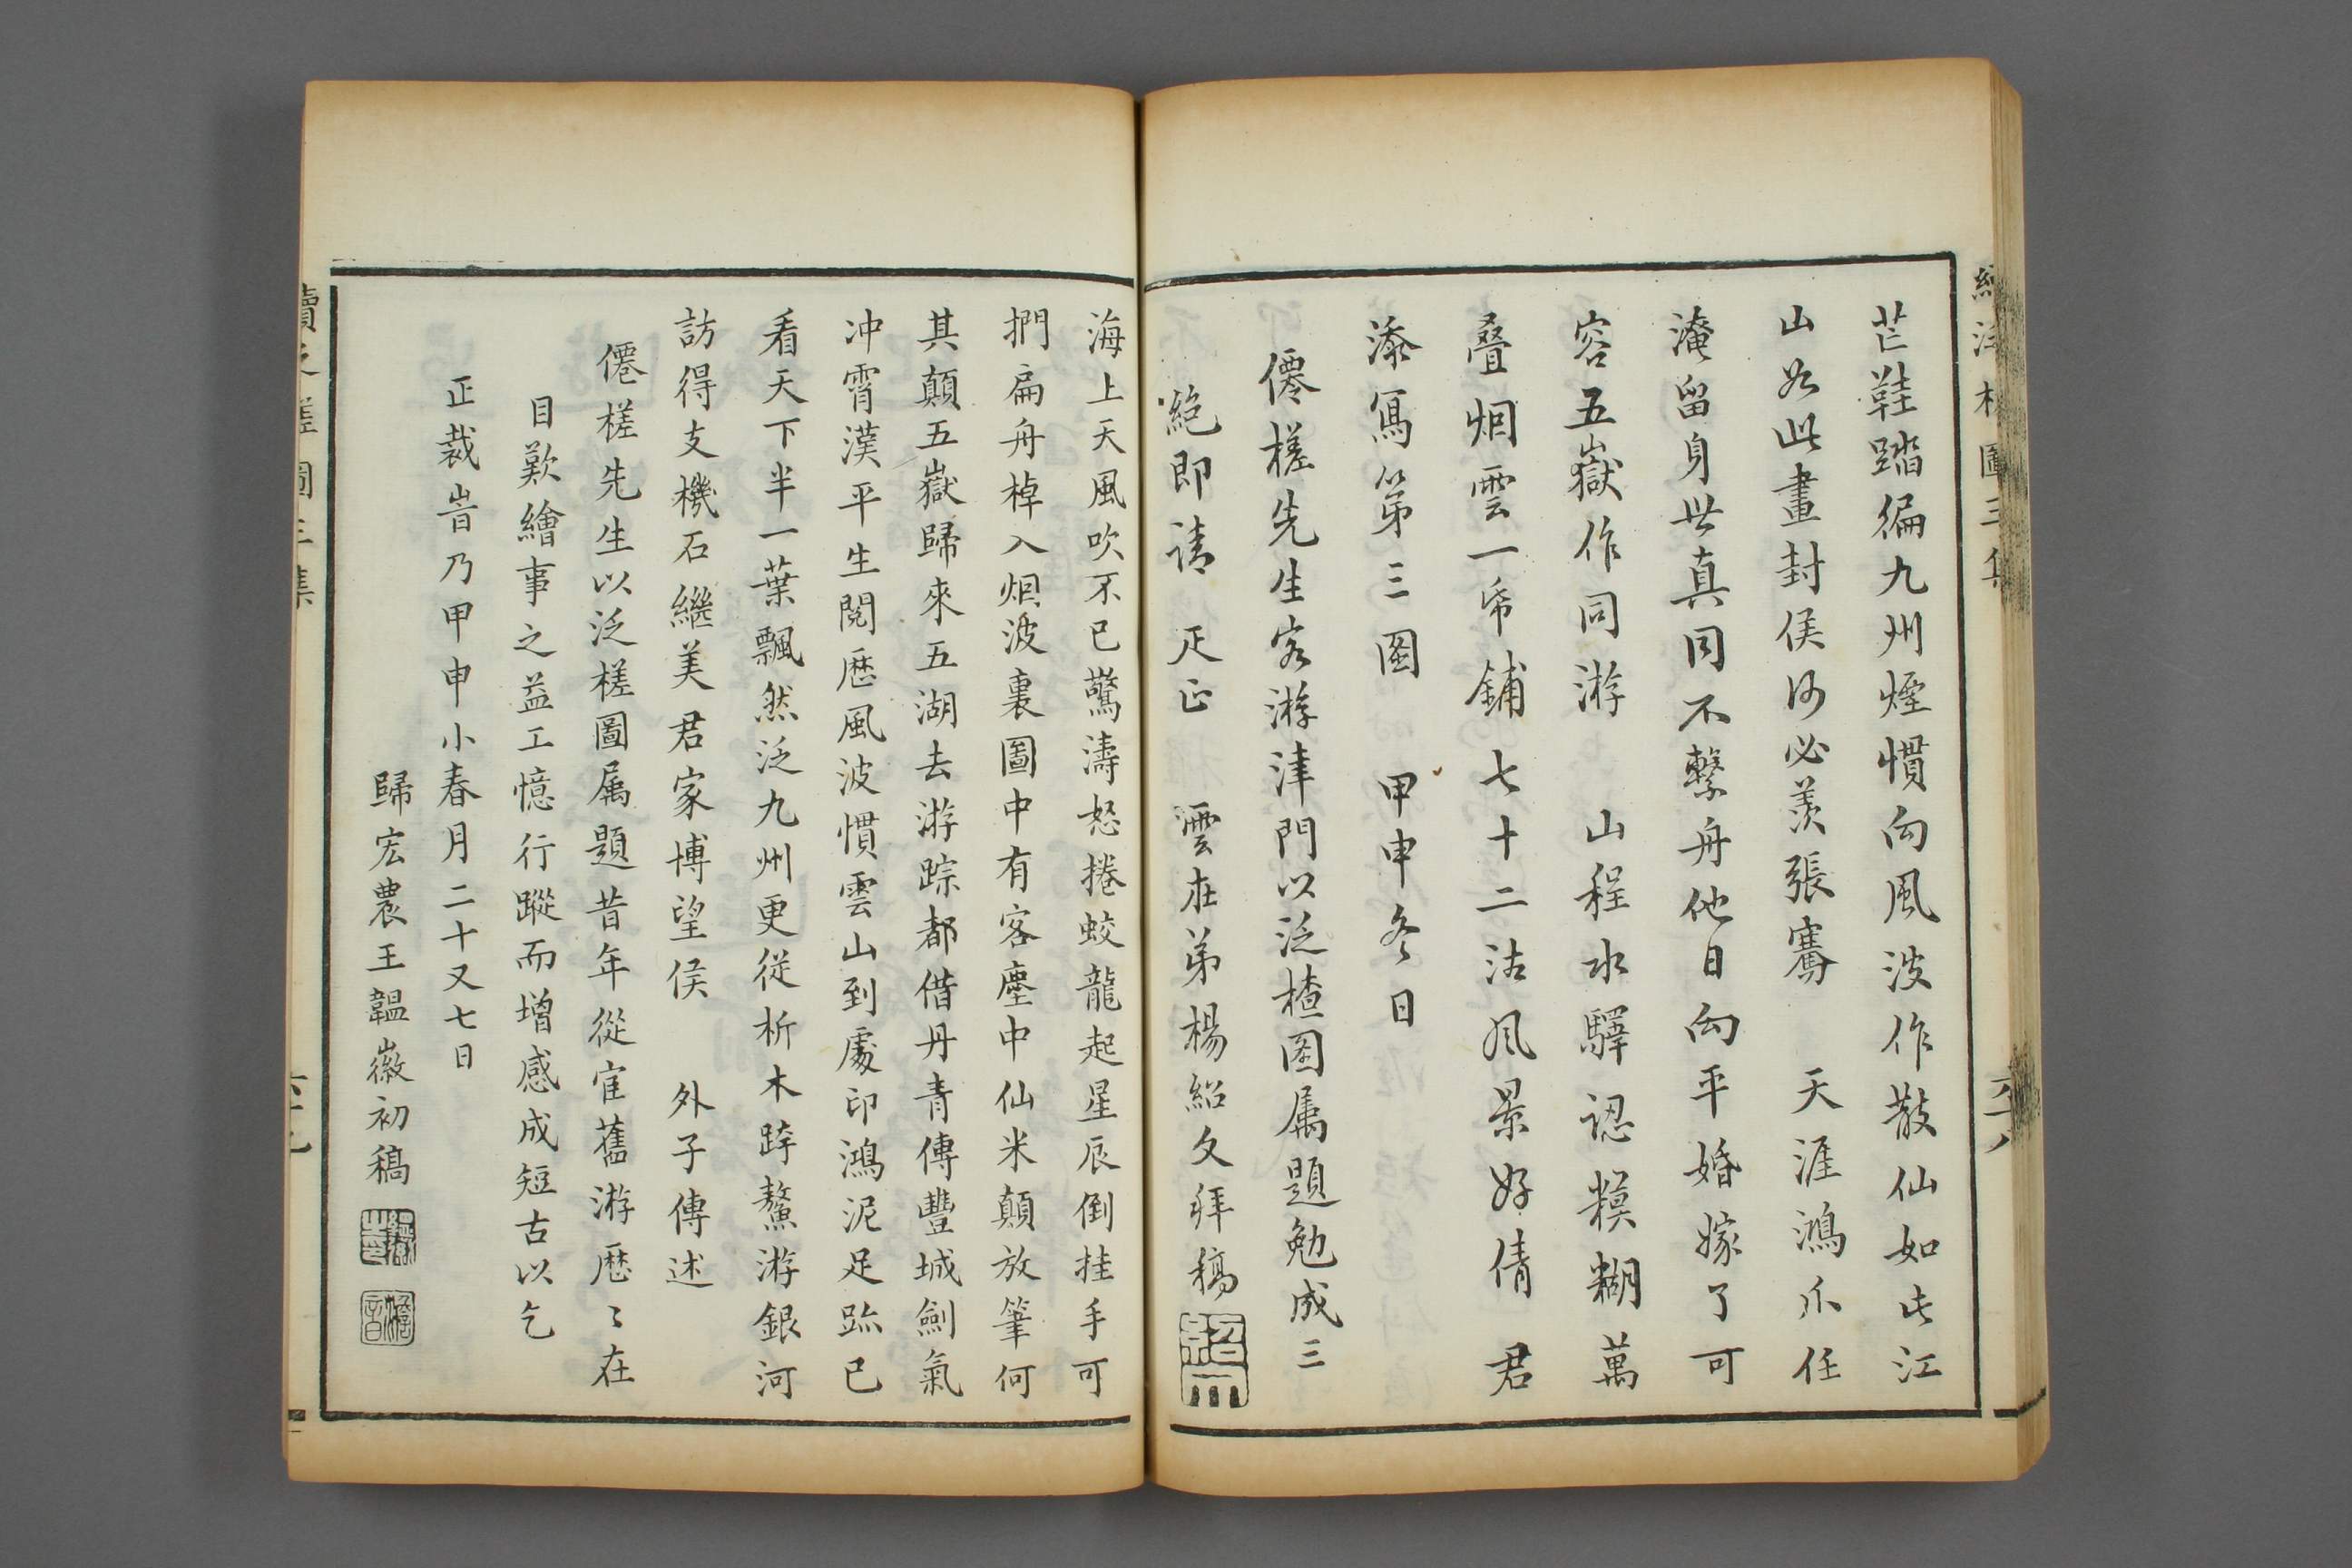 芒鞵踏徧九州煙慣向風波作散仙如此江
山如此畫封侯何必羨張騫　天涯鴻爪任
淹留身世真同不繫舟他日向平婚嫁了可
容五嶽作同游　山程水驛認糢糊萬
叠烟雲一帋鋪七十二沽风景好倩君
添寫第三圖　甲申冬日
僊槎先生客游津門以泛楂圖属題勉成三
絶即請疋正　澐在弟楊紹文拜稿
海上天風吹不已驚濤怒捲蛟龍起星辰倒挂手可
捫扁舟棹入烟波裏圖中有客塵中仙米顛放筆何
其顛五嶽歸來五湖去游踪都借丹青傳豐城劍氣
冲霄漢平生閱歷風波慣雲山到處印鴻泥足跡已
看天下半一葉飄然泛九州更從析木跨鰲游銀河
訪得支機石繼美君家博望侯　外子傳述
僊槎先生以泛槎圖属題昔年從宦舊游歷〻在
目歎繪事之益工憶行蹤而增感成短古以乞
正裁旹乃甲申小春月二十又七日
歸宏農王韞徽初稿
續泛槎圖三集